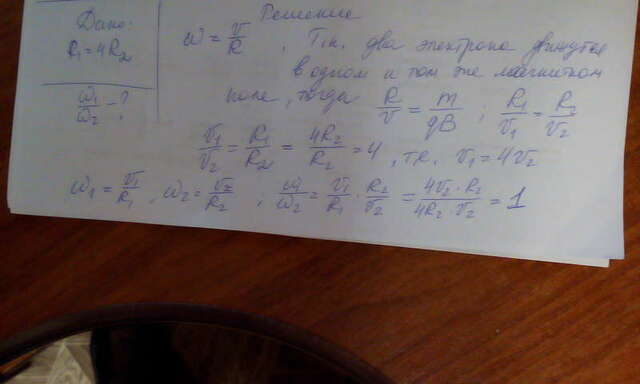 Дано:
R₁=4R₂
ω₁/ω₂-?
Решение
ω=v/R, Т.к. два электрона движутся
в одном и том же магнитном
поле, тогда R/v=m/qB; R₁/v₁=R₂/v₂
v₁/v₂=R₁/R₂=4R₂/R₂=4, т.е. v₁=4v₂
ω₁=v₁/R₁, ω₂=v₂/R₂; ω₁/ω₂=v₁/R₁·R₂/v₂=4v₂·R₂/4R₂·v₂=1